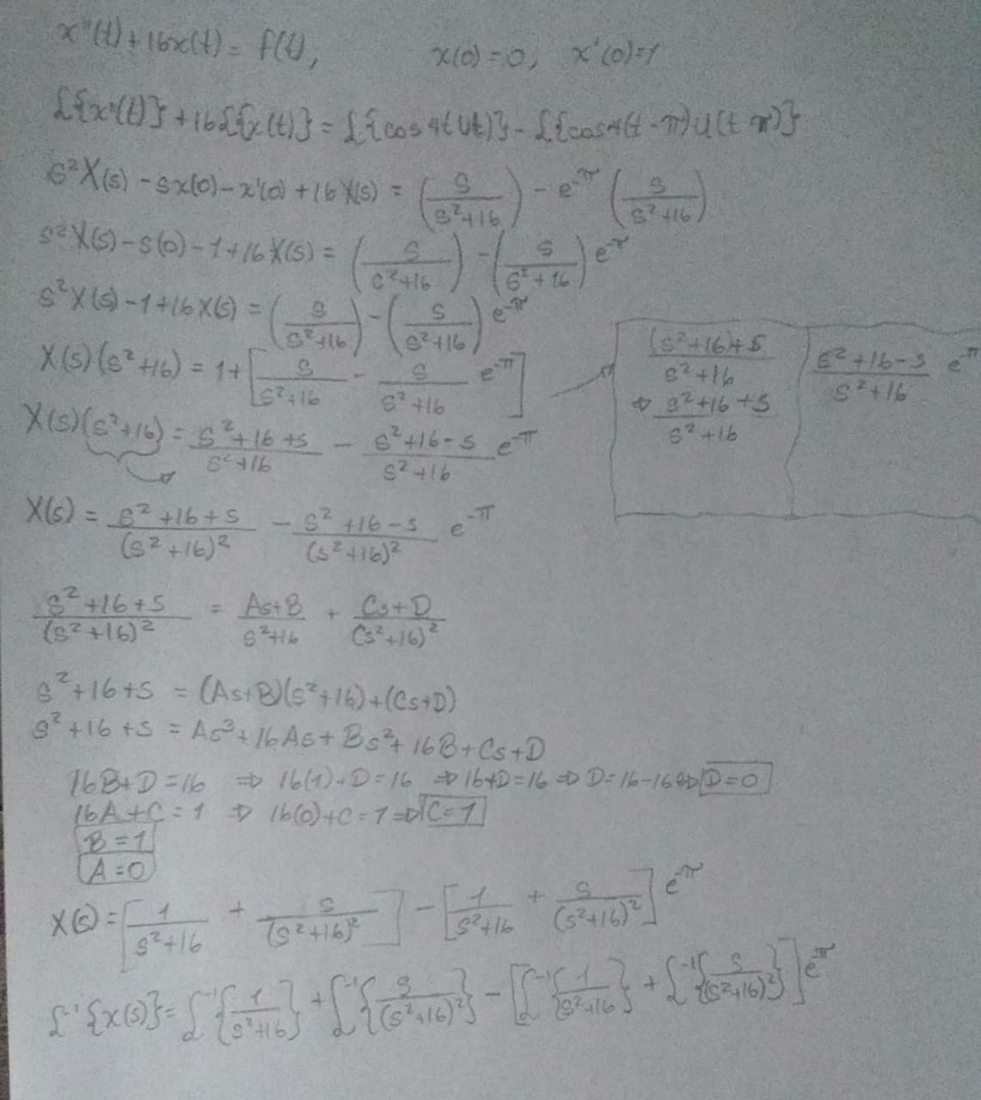 x''(t)+16x(t)= f(t), x(0)=0, x'(0)=1
£{x''(t)}+16£{x(t)} = £{cos4t U(t)} - £{cos4(t-π)U(t π)}
s²X(s) - sx(0) - x'(0) + 16 X(s) = (s/(s²+16)) - e^-π (s/(s²+16))
s²X(s) - s(0) - 1 + 16 X(s) = (s/(s²+16)) - (s/(s²+16)) e^-π
s²X(s) - 1 + 16X(s) = (s/(s²+16)) - (s/(s²+16)) e^-π
X(s)(s²+16) = 1 + [s/(s²+16) - s/(s²+16) e^-π]
((s²+16)+s)/(s²+16)
⇒ (s²+16+s)/(s²+16)
(s²+16-s)/(s²+16) e^-π
X(s)(s²+16) = (s²+16+s)/(s²+16) - (s²+16-s)/(s²+16) e^-π
X(s) = (s²+16+s)/(s²+16)² - (s²+16-s)/(s²+16)² e^-π
(s²+16+s)/(s²+16)² = (As+B)/(s²+16) + (Cs+D)/(s²+16)²
s²+16+s = (As+B)(s²+16)+(Cs+D)
s²+16+s = As³+16As+Bs²+16B+Cs+D
16B+D=16 ⇒ 16(1)+D=16 ⇒ 16+D=16 ⇒ D=16-16 ⇒ D=0
16A+C=1 ⇒ 16(0)+C=1 ⇒ C=1
B=1
A=0
X(s)=[1/(s²+16) + s/(s²+16)²] - [1/(s²+16) + s/(s²+16)²] e^-π
£⁻¹{x(s)}=£⁻¹{1/(s²+16)}+£⁻¹{s/(s²+16)²}-[£⁻¹{1/(s²+16)}+£⁻¹{s/(s²+16)²}]e^-π